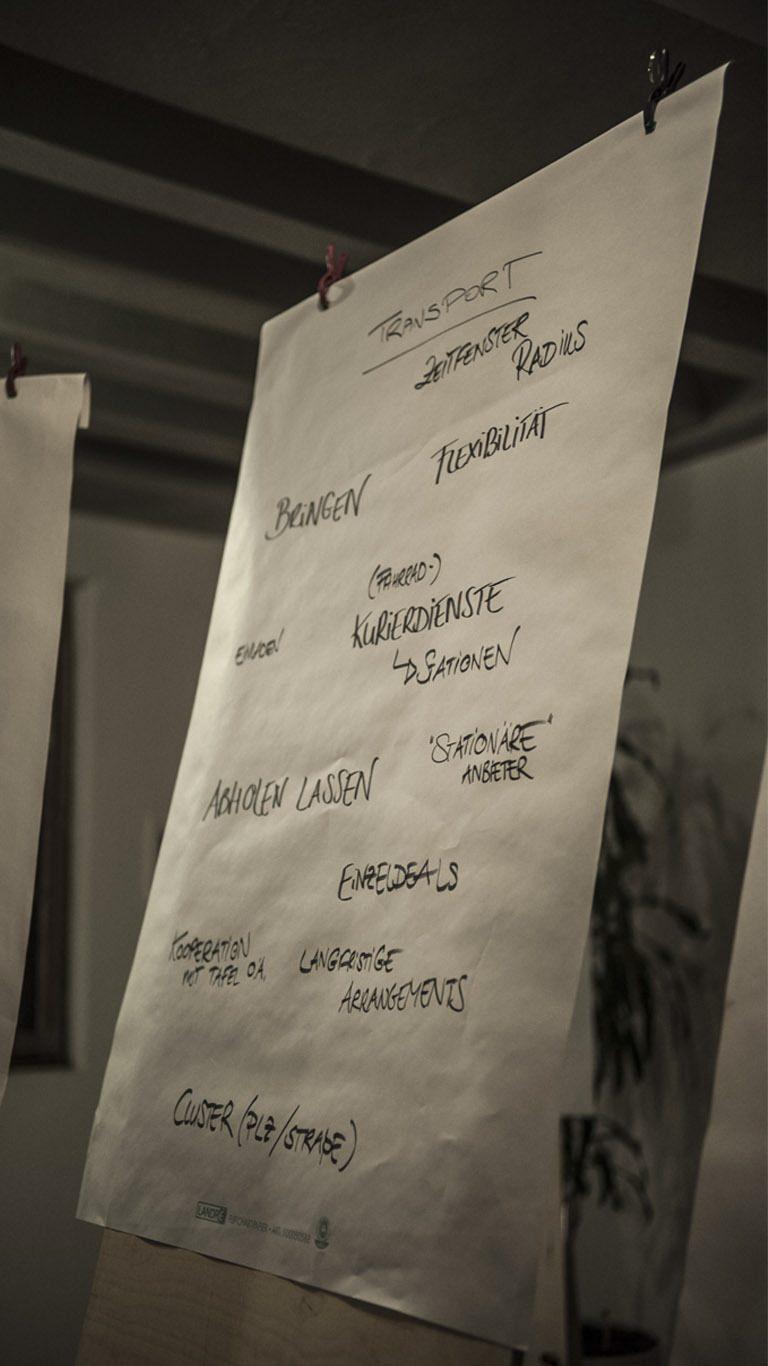 TRANSPORT
ZEITFENSTER
RADIUS
FLEXIBILITÄT
BRINGEN
(FAHRRAD-)
KURIERDIENSTE
↳ STATIONEN
EINLADEN
"STATIONÄRE"
ANBIETER
ABHOLEN LASSEN
EINZELDEALS
KOOPERATION
MIT TAFEL O.Ä.
LANGFRISTIGE
ARRANGEMENTS
CLUSTER (PLZ/STRAßE)
LANDRÉ